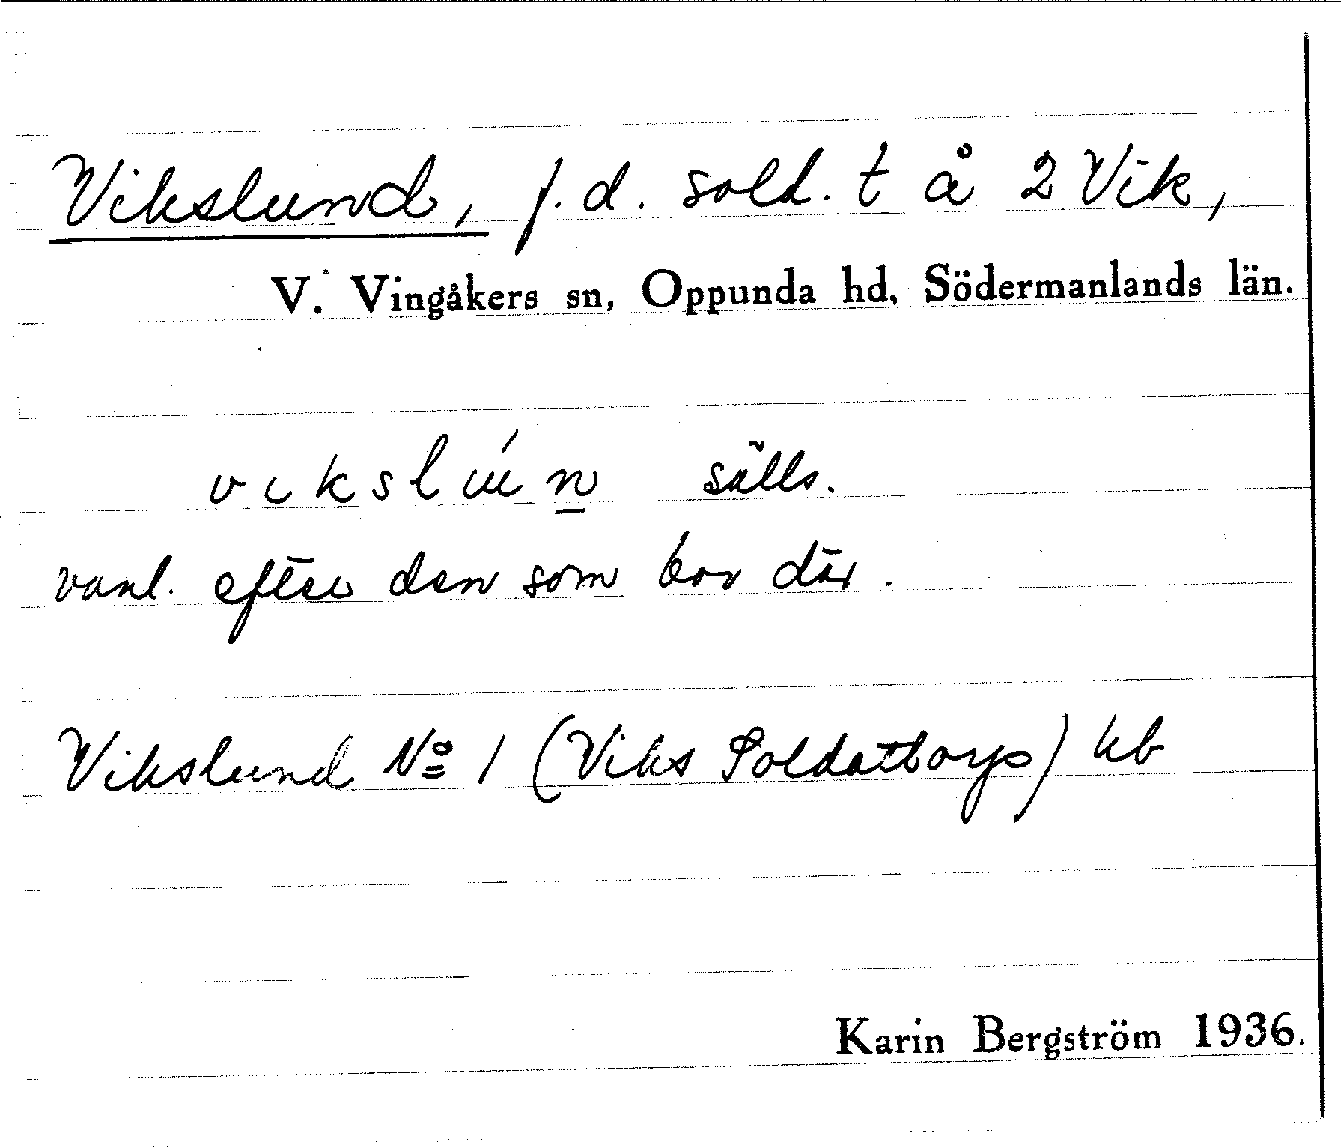 Vikslund, f.d. sold. t å 2 Vik,
V. Vingåkers sn, Oppunda hd, Södermanlands län.
sälls.
vanl. efter den som bor där.
Vikslund № 1 (Viks Soldattorp) kb
Karin Bergström 1936.